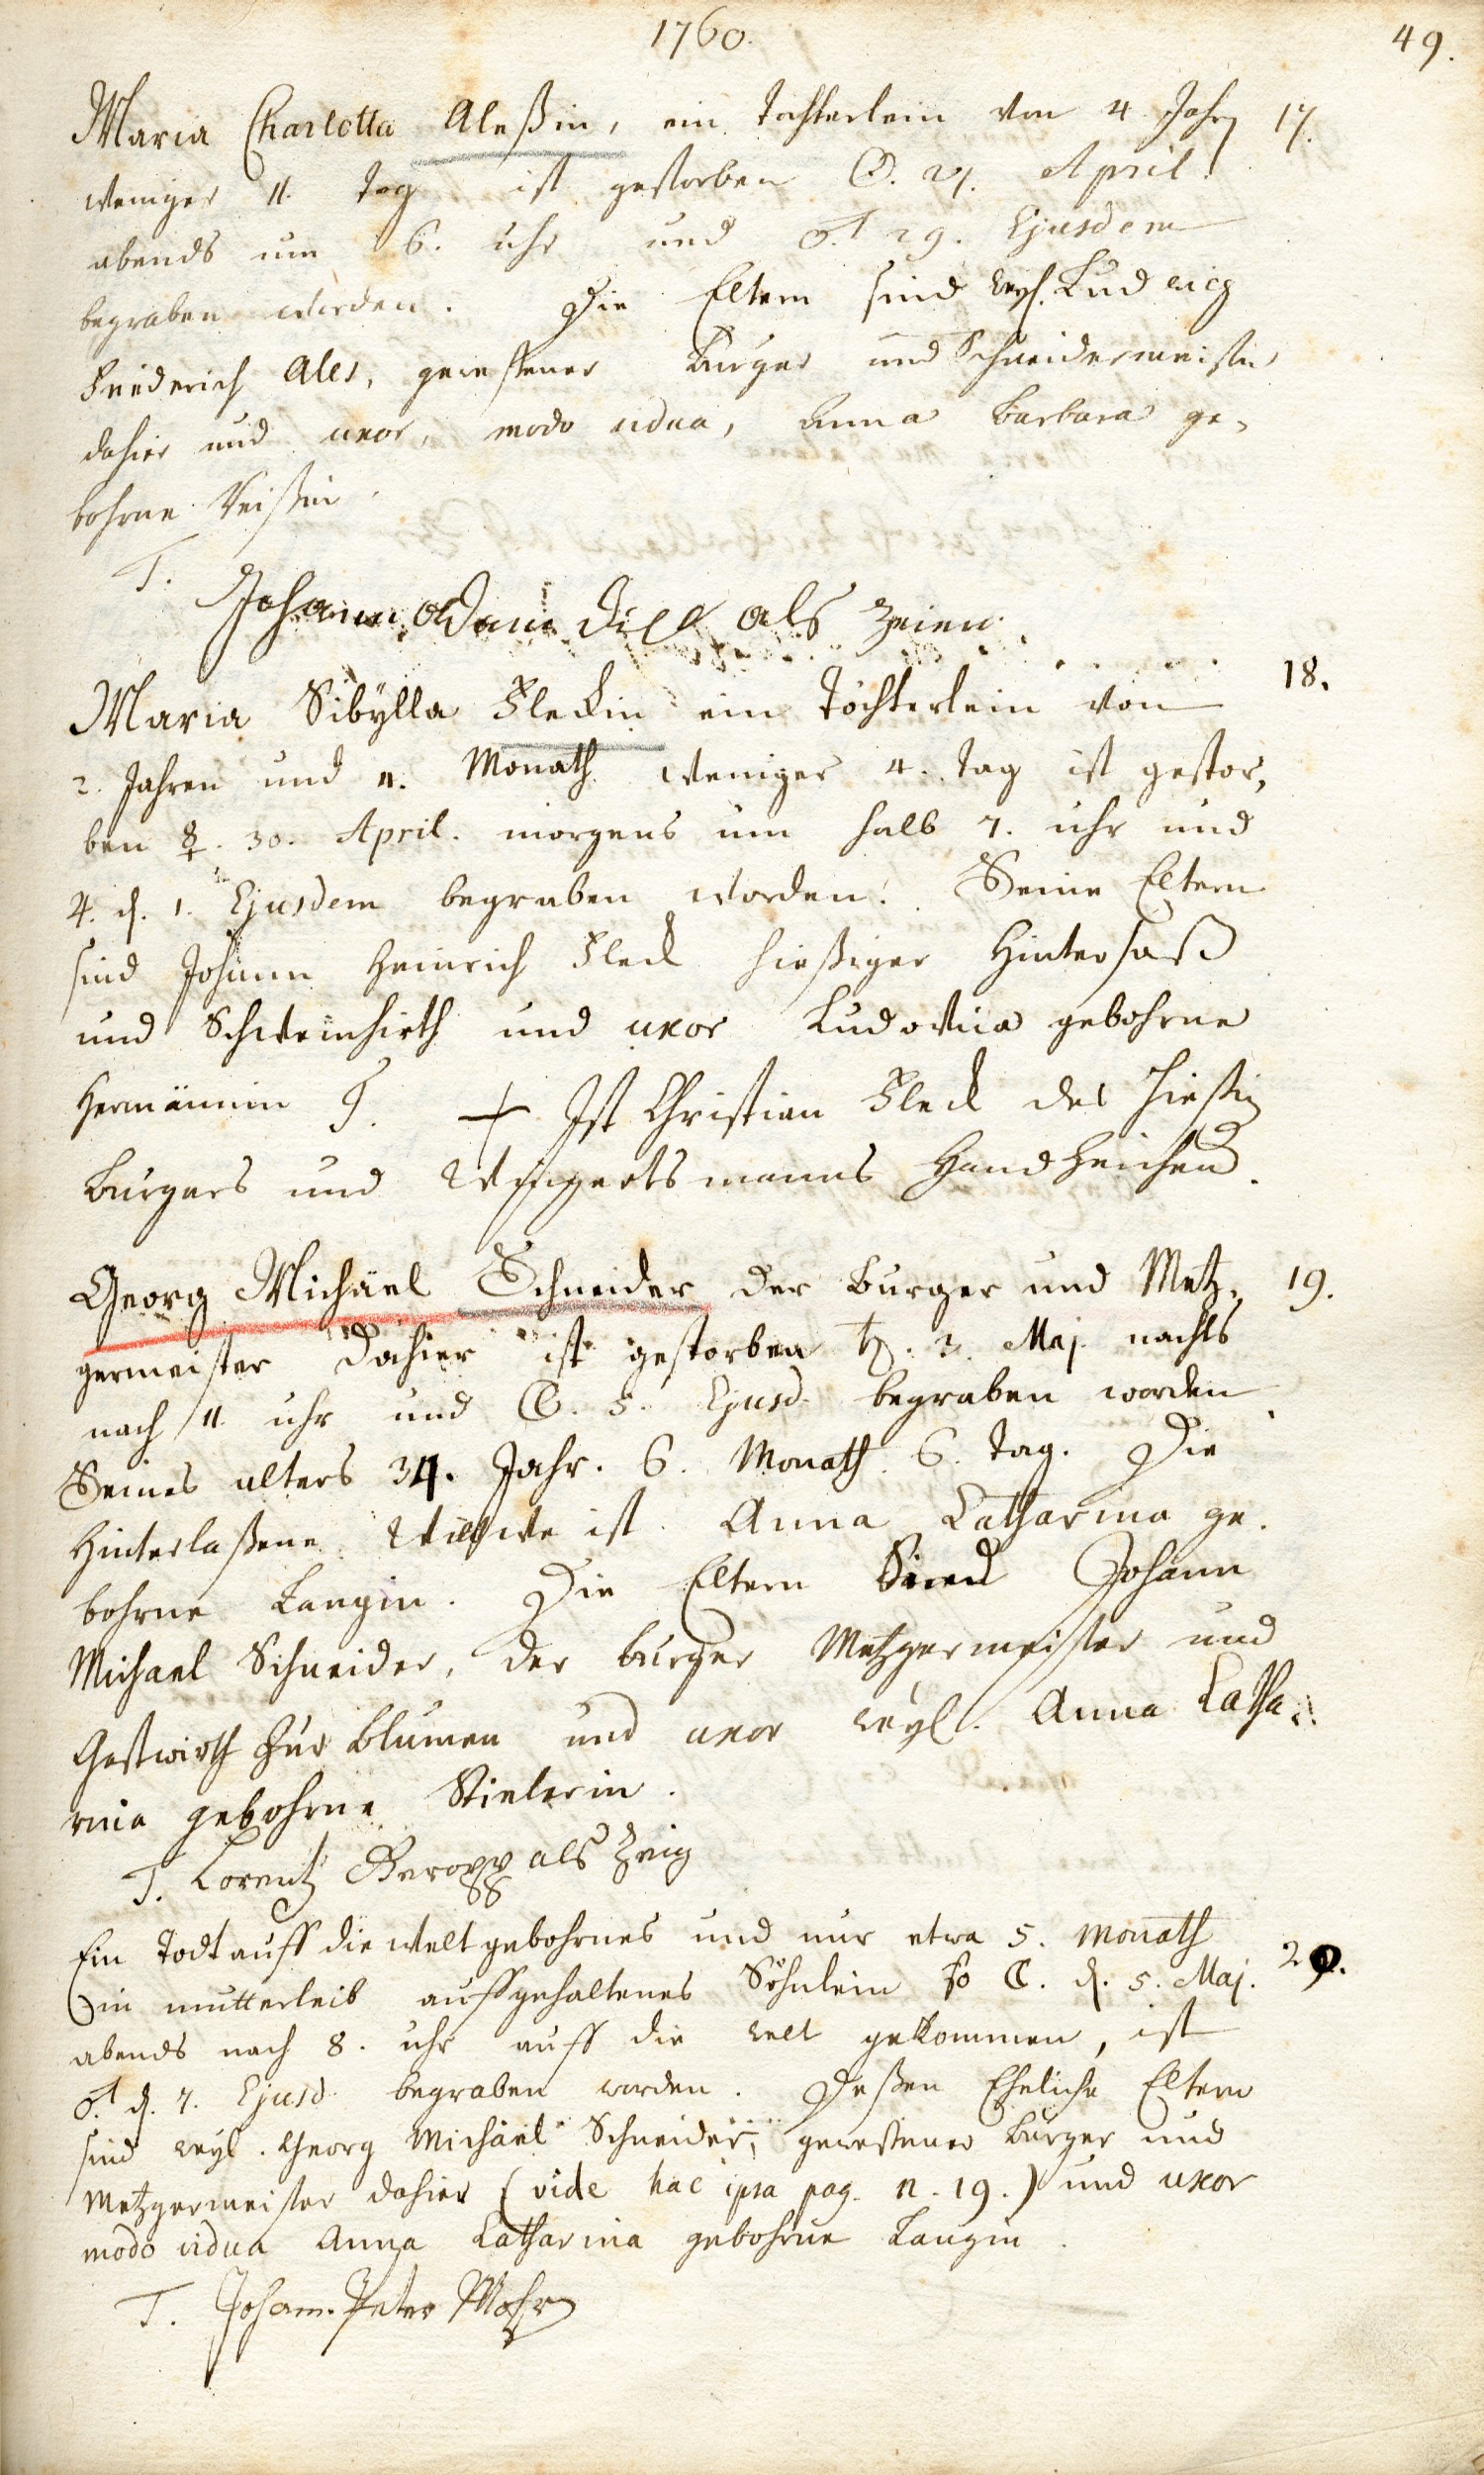 1760.
49.
Maria Charlotta Aleßin, ein Töchterlein von 4 Jahr 17.
weniger 11. Tag ist gestorben ☉. 27. April.
abends um 6. uhr und ♂. 29. Ejusdem
begraben worden. Die Eltern sind weyl. Ludwig
Friderich Ales, gewesener Burger und Schneidermeister
dahier und uxor, modo vidua, Anna Barbara ge-
bohrne Reißin.
T. Johann Adam Dill als Zeien
Maria Sibÿlla Fleckin ein Töchterlein von 18.
2. Jahren und 11. Monath weniger 4. Tag ist gestor-
ben ☿. 30. April. morgens um halb 7. uhr und
♃. d. 1. Ejusdem begraben worden. Seine Eltern
sind Johann Heinrich Fleck hießiger Hintersaß
und Schweinhirth und uxor Ludovica gebohrne
Hermännin T. + Ist Christian Fleck des hießig
Burgers und Wingertsmanns Handzeichen.
Georg Michäel Schneider der Burger und Metz- 19.
germeister dahier ist gestorben ♄. 3. Maj. nachts
nach 11. uhr und ☾. 5. Ejusd. begraben worden
Seines alters 34. Jahr. 6. Monath. 6. Tag. Die
Hinterlaßene Wittwe ist Anna Catharina ge-
bohrne Langin. Die Eltern Sind Johann
Michael Schneider, der burger Metzgermeister und
Gastwirth zur Blumen und uxor weyl. Anna Catha-
rina gebohrne Stielerin.
T. Lorentz als Zeig
Ein Todt auff die welt gebohrnes und nur etwa 5. Monath
in mutterleib auffgehaltenes Söhnlein so ☾. d. 5. Maj. 20.
abends nach 8. uhr auff die welt gekommen, ist
♂. d. 7. Ejusd. begraben worden. Deßen Eheliche Eltern
sind weyl. Georg Michäel Schneider, gewesener Burger und
Metzgermeister dahier (vide hac ipsa pag. n. 19.) und uxor
modo vidua Anna Catharina gebohrne Langin.
T. Joham. Peter Mohr